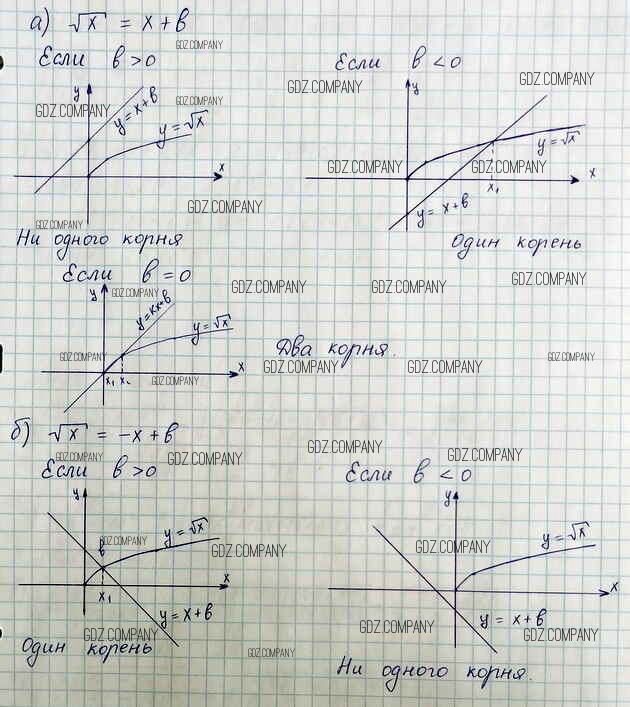 а) √x = x + в
GDZ.COMPANY
Если в > 0
Если в < 0
GDZ.COMPANY
GDZ.COMPANY
y
y = x+в
GDZ.COMPANY
GDZ.COMPANY
y = √x
x
GDZ.COMPANY
GDZ.COMPANY
Ни одного корня
y
y = √x
GDZ.COMPANY
GDZ.COMPANY
x
x₁
y = x+в
Один корень
Если в = 0
GDZ.COMPANY
GDZ.COMPANY
GDZ.COMPANY
GDZ.COMPANY
y
y=kx+в
y=√x
GDZ.COMPANY
x
x₁ x₂
GDZ.COMPANY
Два корня.
GDZ.COMPANY
GDZ.COMPANY
б) √x = -x + в
GDZ.COMPANY
GDZ.COMPANY
GDZ.COMPANY
GDZ.COMPANY
Если в > 0
Если в < 0
y
в
GDZ.COMPANY
y = √x
GDZ.COMPANY
x
x₁
y = x+в
GDZ.COMPANY
Один корень
GDZ.COMPANY
y
GDZ.COMPANY
y = √x
x
y = x+в
GDZ.COMPANY
GDZ.COMPANY
Ни одного корня.